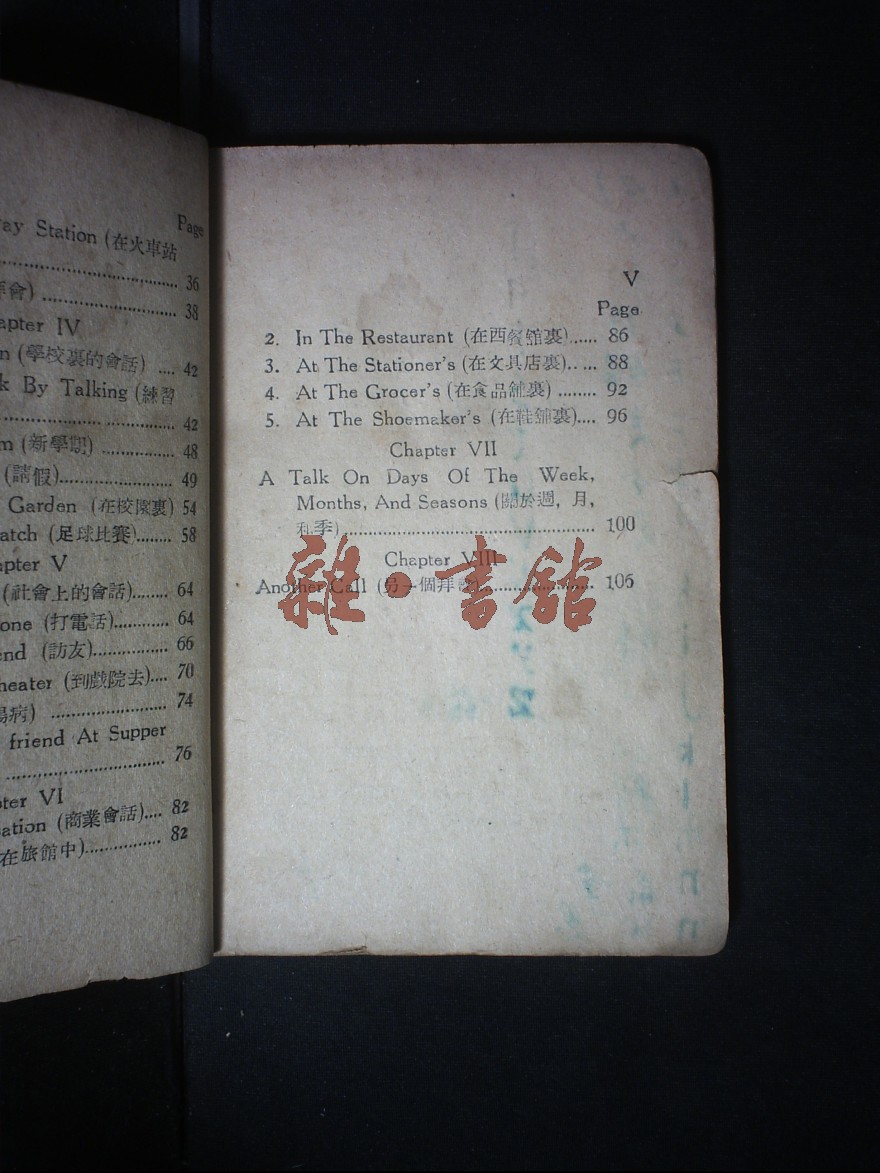 Page
Station (在火車站
36
38
Chapter IV
(學校裏的會話) .... 42
By Talking (練習
42
(新學期) 48
(請假) 49
Garden (在校園裏) 54
(足球比賽) 58
Chapter V
(社會上的會話) 64
(打電話) 64
(訪友) 66
(到戲院去) 70
74
friend At Supper
76
VI
(商業會話) 82
在旅館中) 82
V
Page
2. In The Restaurant (在西餐館裏)...... 86
3. At The Stationer's (在文具店裏)..... 88
4. At The Grocer's (在食品舖裏) ........ 92
5. At The Shoemaker's (在鞋舖裏).... 96
Chapter VII
A Talk On Days Of The Week,
Months, And Seasons (關於週, 月,
和季) 100
Chapter VIII
Another Call (另一個拜會) 106
雜·書館